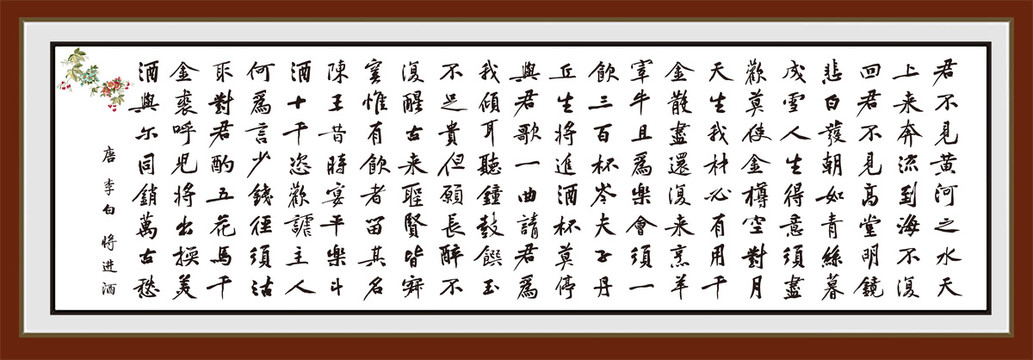 君不見黃河之水天
上来奔流到海不復
回君不見高堂明鏡
悲白發朝如青絲暮
成雪人生得意須盡
歡莫使金樽空對月
天生我材必有用千
金散盡還復来烹羊
宰牛且爲樂會須一
飲三百杯岑夫子丹
丘生將進酒杯莫停
與君歌一曲請君爲
我傾耳聽鐘鼓饌玉
不足貴但願長醉不
復醒古来聖賢皆寂
寞惟有飲者留其名
陳王昔時宴平樂斗
酒十千恣歡謔主人
何爲言少錢徑須沽
取對君酌五花馬千
金裘呼兒將出換美
酒與尔同銷萬古愁
唐 李白 将進酒